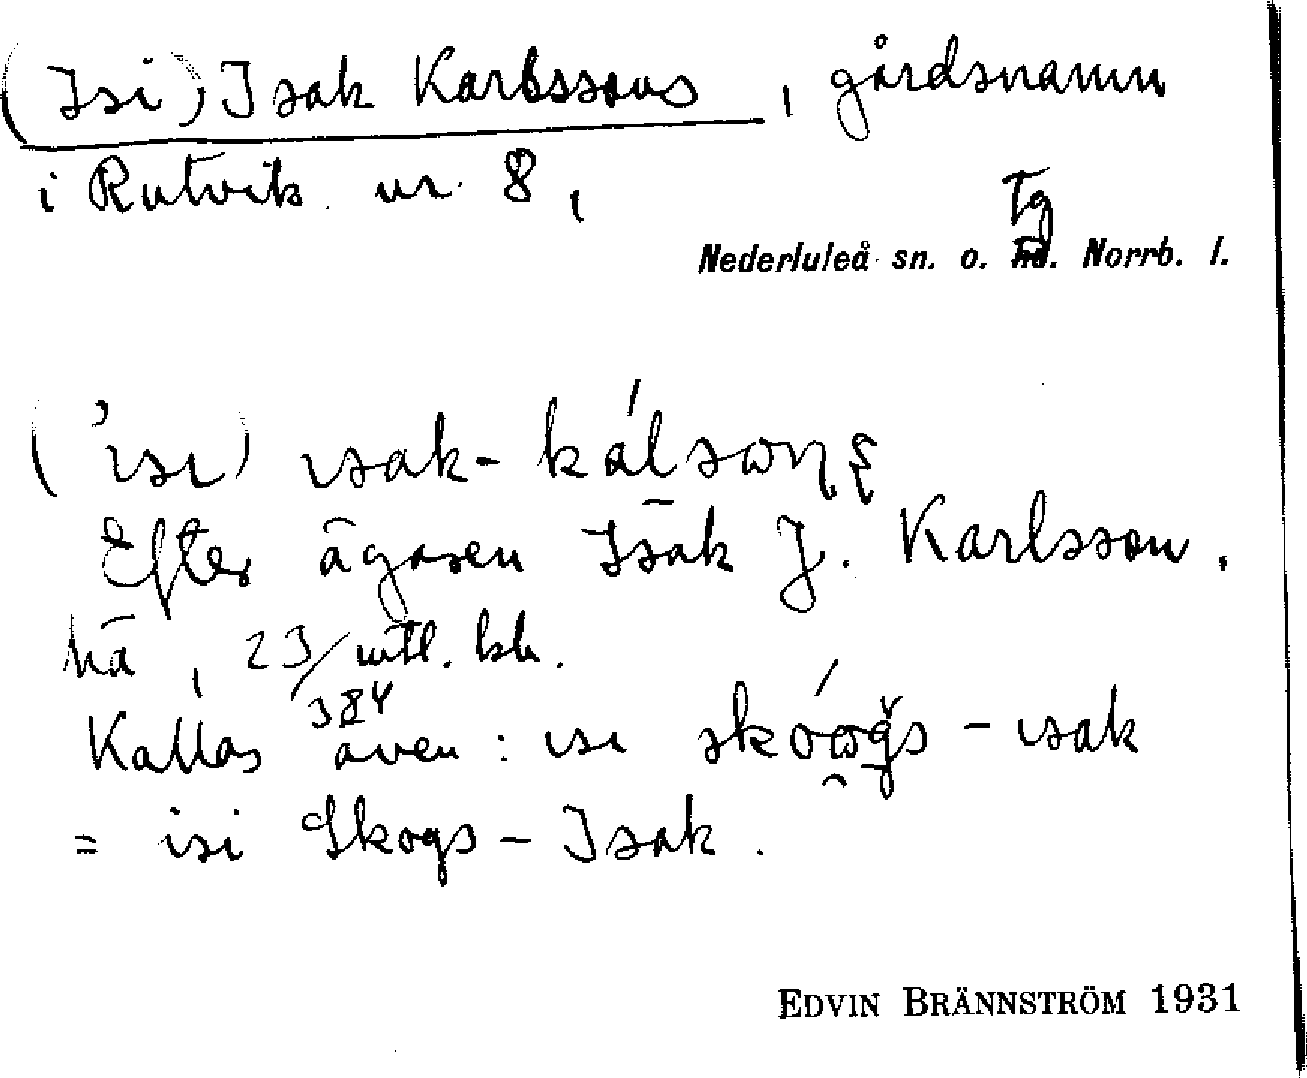 (Isi) Isak Karlssons, gårdsnamn
i Rutvik nr 8,
Tg
Nederluleå sn. o. hd. Norrb. l.
('ısı) ısak-kálsωn̥s
Efter ägaren Isak J. Karlsson.
hä, 23/384 mtl. kr.
Kallas även: ısı skóω̯gs-ısak
= isi Skogs-Isak.
EDVIN BRÄNNSTRÖM 1931